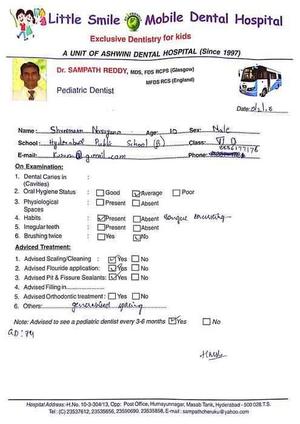 Little Smile Mobile Dental Hospital
Exclusive Dentistry for kids
A UNIT OF ASHWINI DENTAL HOSPITAL (Since 1997)
Dr. SAMPATH REDDY, MDS, FDS RCPS (Glasgow)
MFDS RCS (England)
Pediatric Dentist
Date:
Name: Narayana Age: 10 Sex: Male
School: Hyderabad Public School (B) Class: D
E-mail: @gmail.com Phone:
On Examination:
1. Dental Caries in :
(Cavities)
2. Oral Hygiene Status : Good Average Poor
3. Physiological : Present Absent
Spaces
4. Habits : Present Absent tongue thrusting
5. Irregular teeth : Present Absent
6. Brushing twice : Yes No
Adviced Treatment:
1. Advised Scaling/Cleaning : Yes No
2. Advised Flouride application: Yes No
3. Advised Pit & Fissure Sealants: Yes No
4. Advised Filling in
5. Advised Orthodontic treatment : Yes No
6. Others: generalised spacing
Note: Advised to see a pediatric dentist every 3-6 months Yes No
Hospital Address: H.No. 10-3-304/13, Opp. Post Office, Humayunnagar, Masab Tank, Hyderabad - 500 028 T.S.
Tel: (C) 23537612, 23535656, 23590690, 23535858, E-mail : sampathcheruku@yahoo.com